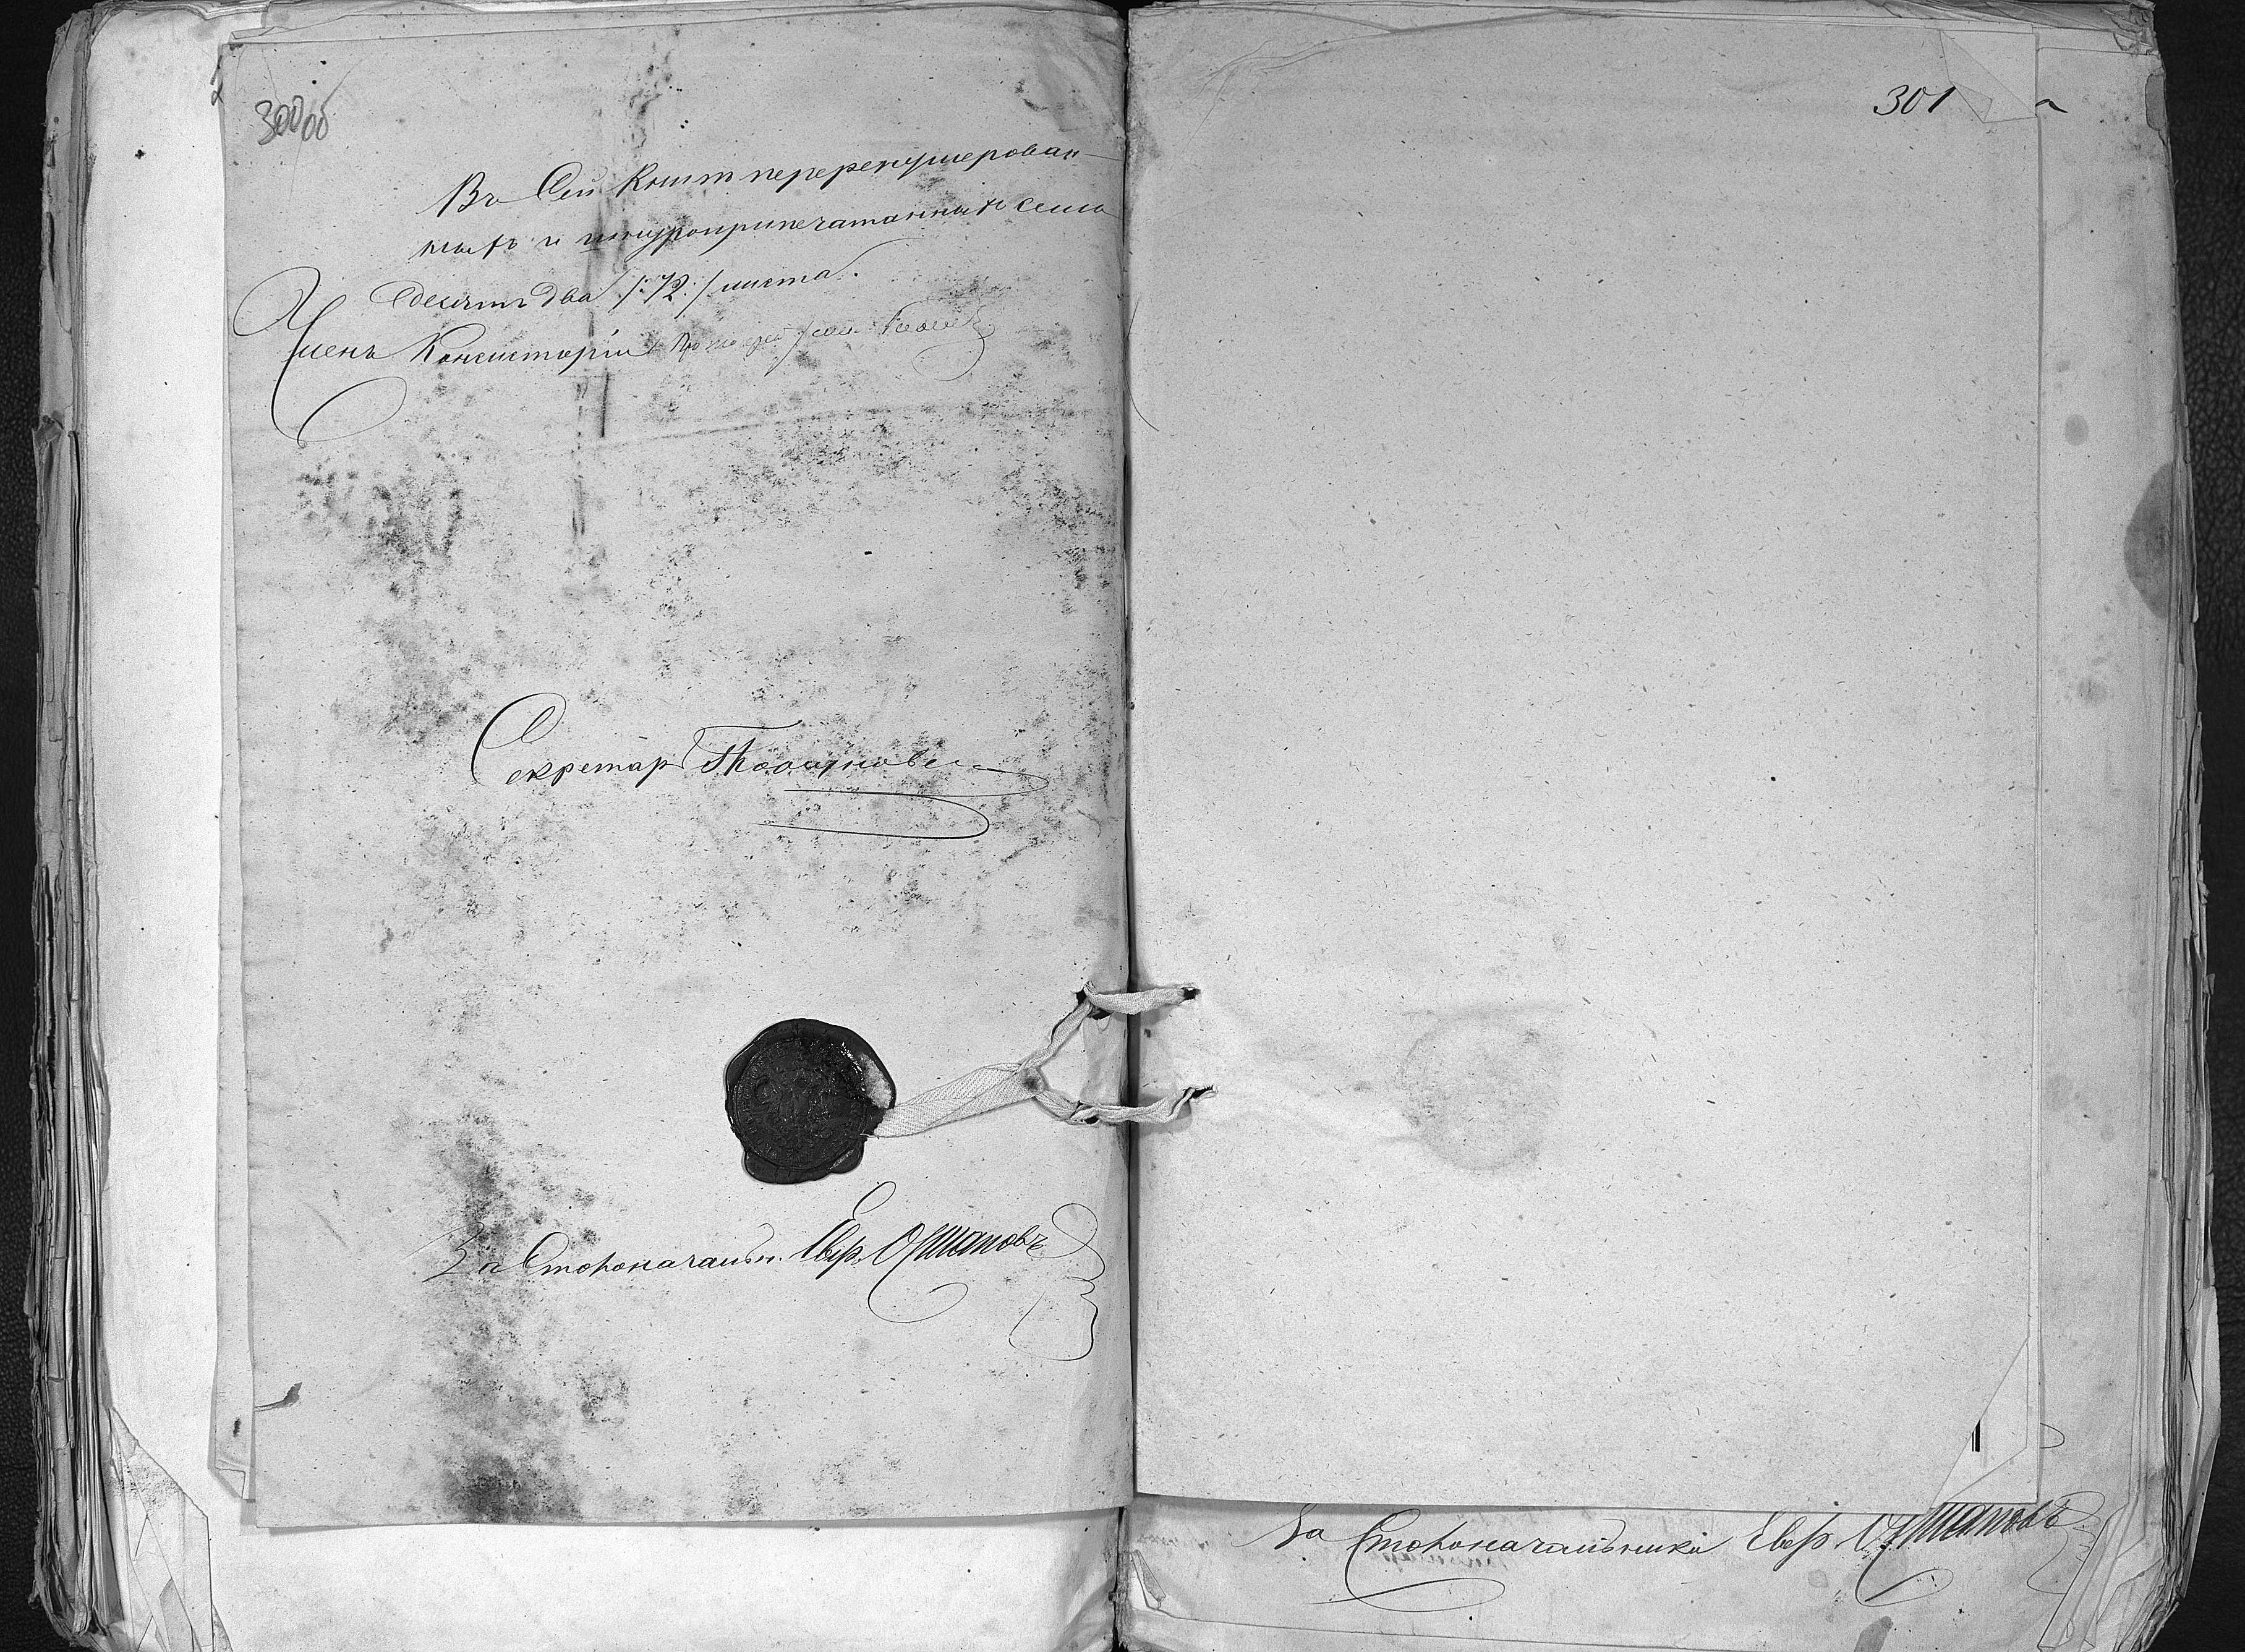 300 об
Въ Сей Книг перереnумерован-
ныхъ и шнуроприпечатанныхъ семь
десятъ два /:72:/ листа.
Членъ Консисторіи Протоіерей
Секретарь
За Столоначальн. Евф. Ошановъ
301
За Столоначальника Евф. Ошановъ